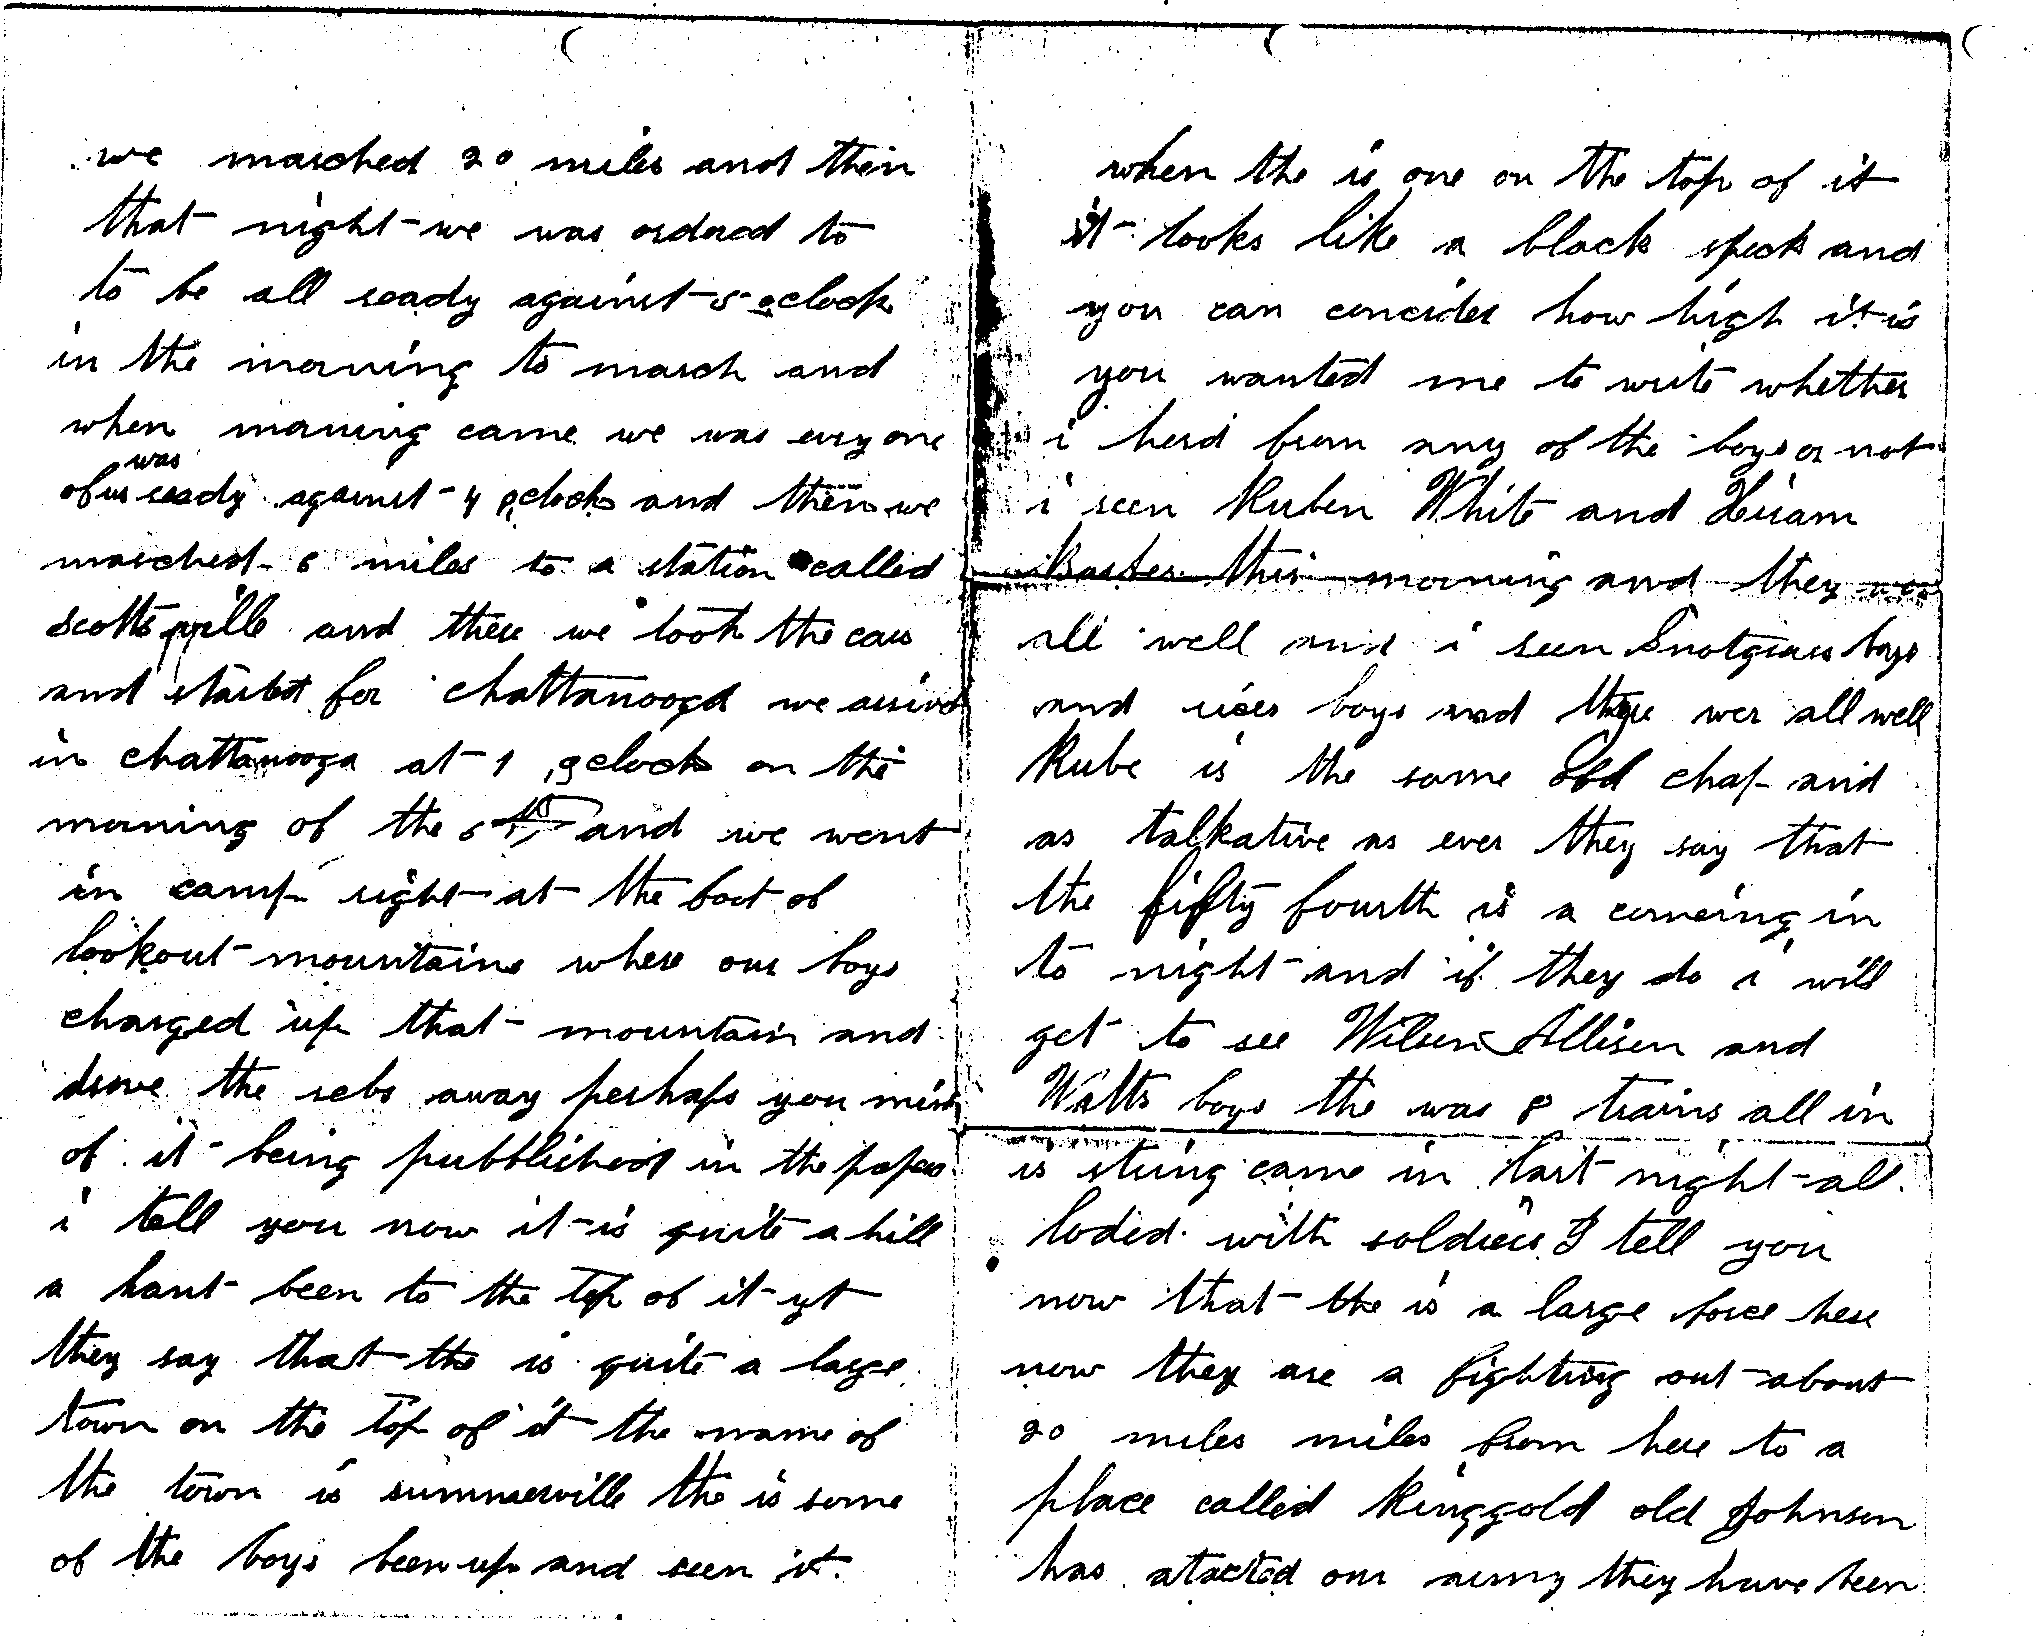 we marched 20 miles and then
that night we was ordered to
to be all ready against 5 oclock
in the morning to march and
when morning came we was evry one
was
of us ready against 4 oclock and then we
marched 6 miles to a station called
scottsville and there we took the cars
and starbt for chattanooga we arived
in chattanooga at 1 oclock on the
morning of the 6th and we went
in camp right at the foot of
lookout mountains where our boys
charged up that mountain and
drove the rebs away perhaps you mind
of it being pubblished in the papers
i tell you now it is quite a hill
a hant been to the top of it yt
they say that the is quite a large
town on the top of it the name of
the town is summerville the is some
of the boys been up and seen it.
when the is one on the top of it
it looks like a black speck and
you can concider how high it is
you wanted me to write whether
i herd from any of the boys or not
i seen Ruben White and Hiram
Barber this morning and they wer
all well and i seen Snotgrass boys
and rices boys and there wer all well
Rube is the same old chap and
as talkative as ever they say that
the fifty fourth is a comeing in
to night and if they do i will
get to see Wilson Allison and
Watts boys the was 8 trains all in
is string came in last night all
loded with soldiers I tell you
now that the is a large force here
now they are a fighting out about
20 miles miles from here to a
place called Ringgold old Johnson
has atacted our army they have been